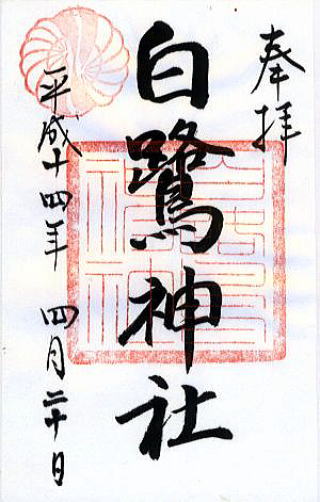 奉拝
白鷺神社
平成十四年 四月二十日